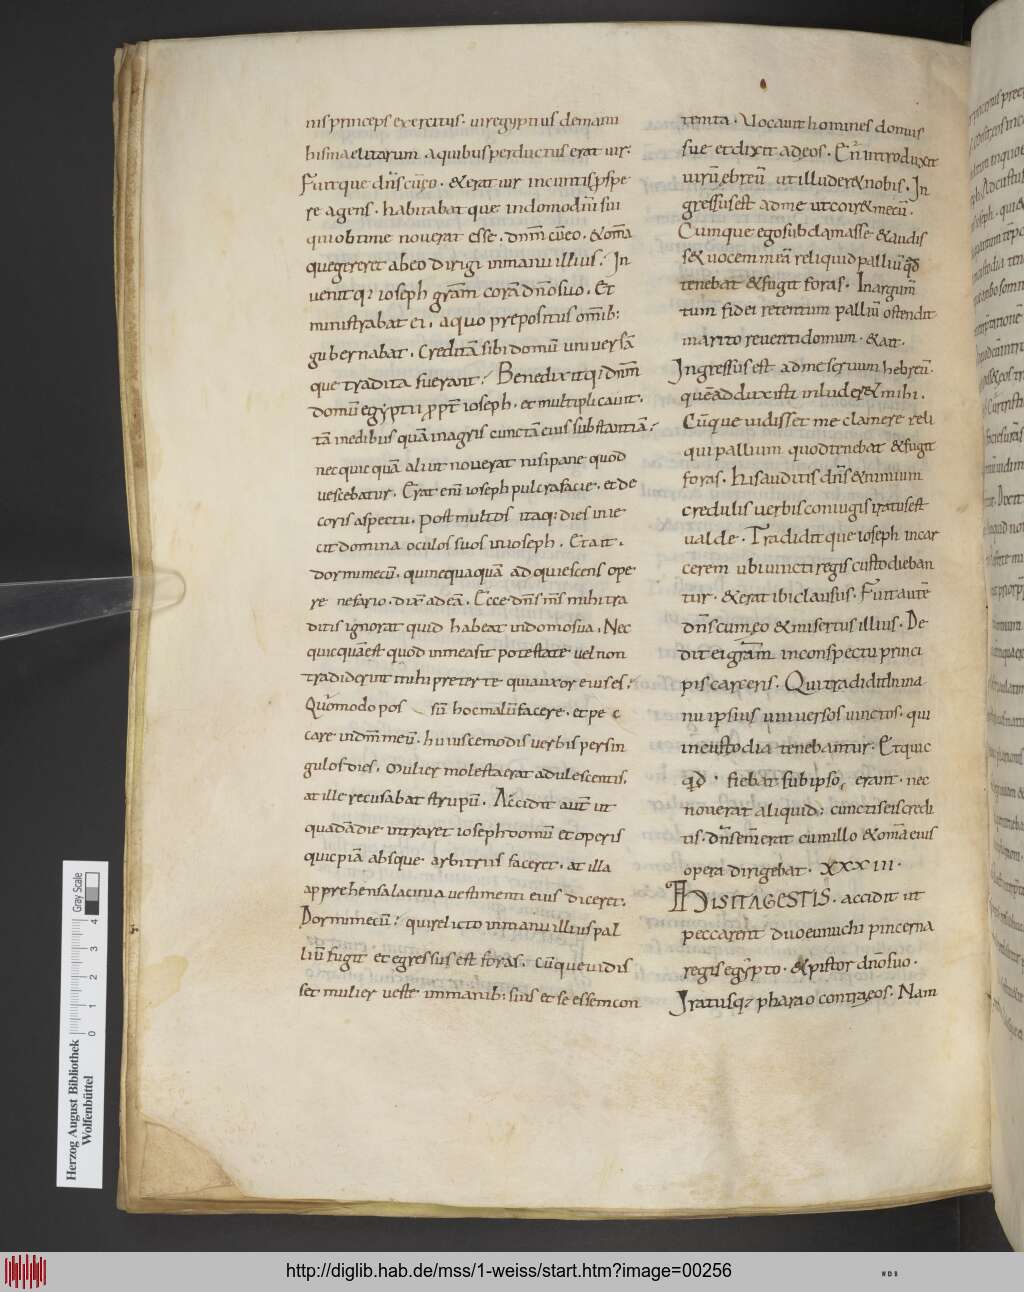 nis princeps exercitus. uir egyptius de manu
hismaelitarum a quibus perductus erat uir.
Fuitque dn̄s cū eo. & erat uir in cunctis pspe
re agens. habitabat que in domo dn̄i sui
qui obtime nouerat esse. dn̄m cū eo. & om̄a
que gereret ab eo dirigi in manu illius. In
uenit q; ioseph grām corā dn̄o suo. Et
ministrabat ei. a quo prepositus om̄ib;
gubernabat. Creditā sibi domū uniuersā
que tradita fuerant. Benedixit q; dn̄m
domū egyptii ppt̄ ioseph. et multiplicauit.
tā inedibus quā in agris cunctā eius substantiā.
nec quicquā aliut nouerat nisi pane quod
uescebatur. Erat enī ioseph pulcra facie. et de
coris aspectu. post multos itaq; dies inie
cit domina oculos suos in ioseph. Et ait.
dormi mecū. qui nequaquā adquiescens ope
re nefario. dix̄ ad eā. Ecce dn̄s m̄s mihi tra
ditis ignorat quid habeat in domo sua. Nec
quicquā est quod in mea sit potestate uel non
tradiderint mihi preter te quia uxor eius es.
Quomodo pos sū hoc malū facere. et pe c
care in dn̄m meū. huiuscemodis uerbis per sin
gulos dies. Mulier molesta erat adulescentis.
at ille recusabat strupū. Accidit aut̄ ut
quadā die intraret ioseph domū et operis
quicpiā absque. arbitriis faceret. at illa
apprehensa lacinia uestimenti eius diceret.
Dormi mecū. qui relicto in manu illius pal
liū fugit et egressus est foras. cūque uidis
set mulier ueste in manib. suis et se essem con
temta. Uocauit homines domus
sue et dixit ad eos. En introduxit
uirū ebreū ut illuder& nobis. In
gressus est ad me ut coir& mecū.
Cumque ego subclamasse & audis
s& uocem meā reliquid palliū qđ
tenebat & fugit foras. In argum̄
tum fidei retentum palliū ostendit
marito reuerti domum. & ait.
Ingressus est ad me seruum hebreū.
quē adduxisti inluder& mihi.
Cūque uidisset me clamere reli
qui pallium quod tenebat & fugit
foras. his auditis dn̄s & nimium
credulis uerbis coniugis iratus est
ualde. Tradidit que ioseph in car
cerem ubi uincti regis custodieban
tur. & erat ibi clausus. Fuit autē
dn̄s cum eo & misertus illius. De
dit ei grām in conspectu princi
pis carceris. Qui tradidit in ma
nu ipsius uniuersos uinctos. qui
in custodia tenebantur. Et quic
qđ. fiebat sub ipso, erant. nec
nouerat aliquid; cunctis eis credi
tis. dn̄s enī erat cum illo & om̄a eius
opera dirigebat. XXXIII.
HIS ITA GESTIS. accidit ut
peccarent duo eunuchi pincerna
regis egypto. & pistor dn̄o suo.
Iratusq; pharao contra eos. Nam
Herzog August Bibliothek
Wolfenbüttel
Gray Scale
0 1 2 3 4
http://diglib.hab.de/mss/1-weiss/start.htm?image=00256